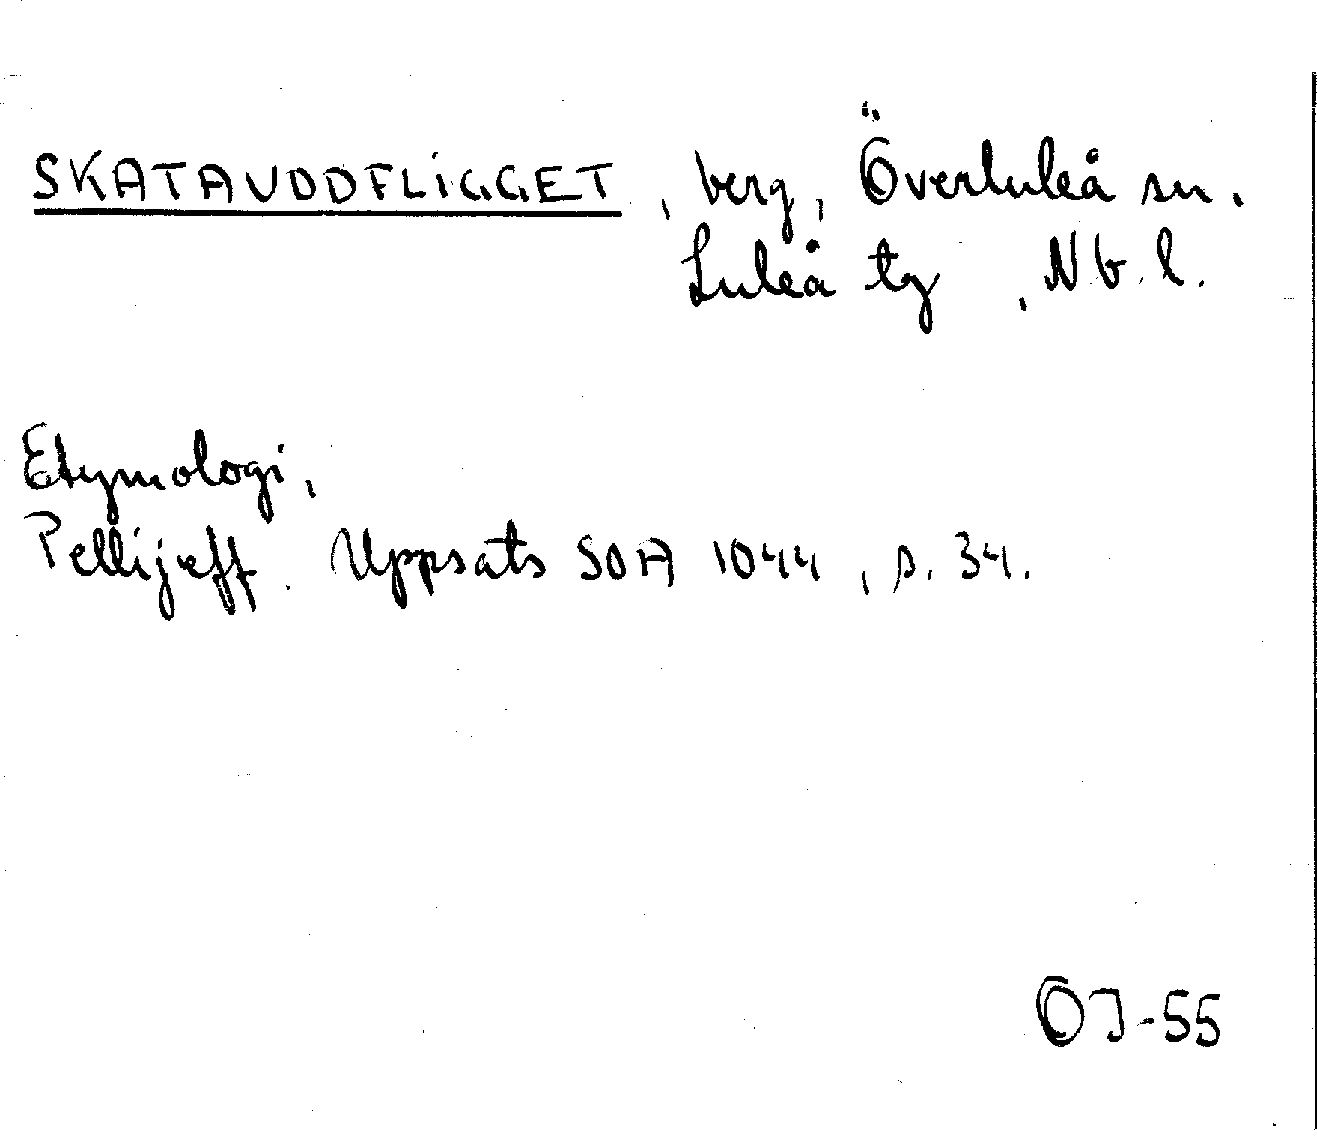 SKATAUDDFLIGGET, berg, Överluleå sn.
Luleå tg, Nb. l.
Etymologi,
Pellijeff. Uppsats SOA 1044, s. 34.
OJ-55